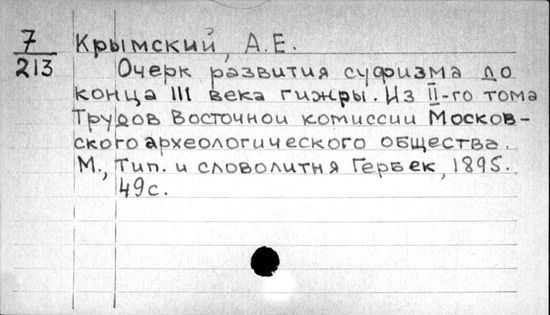 7 Крымский, А.Е.
213 Очерк развития суфизма до
конца III века гижры. Из II-го тома
Трудов Восточной комиссии Москов-
ского археологического общества.
М., Тип. и словолитня Гербек, 1895.
49с.